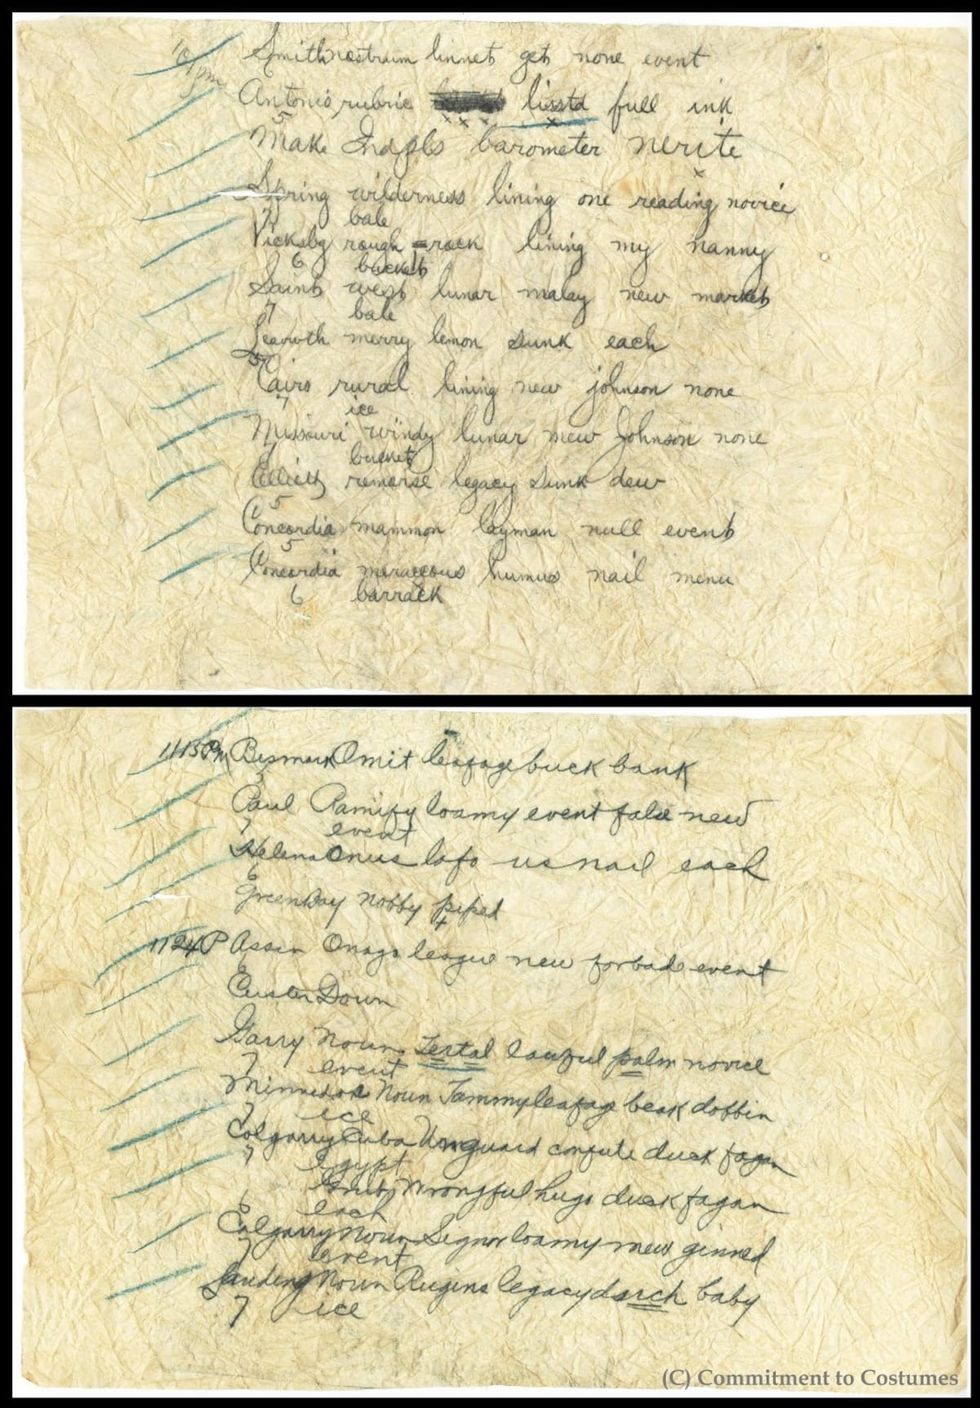 Smith nostrum linnet get none event
10 pm
Antonio rubric lisstd full ink
5
Make Indpls barometer nerite
x
Spring wilderness lining one reading novice
7 bale
Vicksbg rough rack lining my nanny
6 bucket
Saint west lunar malay new market
7 bale
Leavwth merry lemon sunk each
5
Cairo rural lining new johnson none
7 ice
Missouri windy lunar mew Johnson none
7 bucket
Elliott remorse legacy sunk dew
5
Concordia mammon layman null event
5
Concordia meraccous humus nail menu
6 barrack
1113 Pm Bismark Omit leafage buck bank
5
Paul Ramify loamy event false new
7 event
Helena Onus lofo us nail each
6
Greenbay nobby piped
4
1124 P Assin Onago league new forbade event
6
Custer Down
Garry Noun Tertal lawful palm novice
7 event
Minnedos Noun Jammy leafage beak dobbin
7 ice
Calgarry Cuba Unguard confute duck fagan
7 Egypt
Grubs wrongful hugo duck fagan
6 each
Calgarry Noun Signor loamy mew ginned
7 event
Landing Noun Rugins legacy dsrch baby
7 ice
(C) Commitment to Costumes